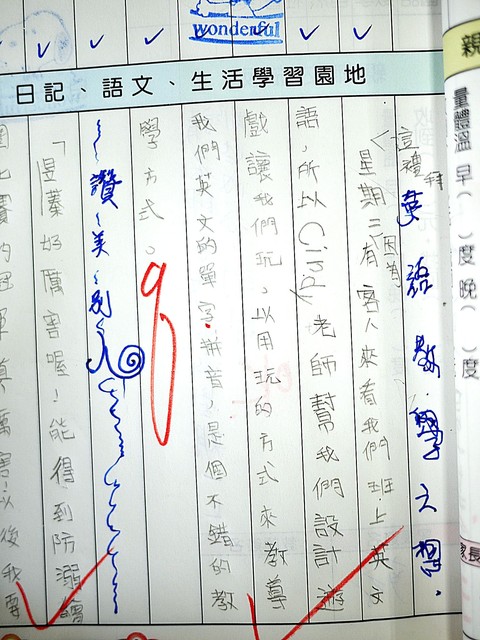 wonderful
日記、語文、生活學習園地
英語教學之想.
這禮拜因為
星期二有客人來看我們班上英文
語,所以Cindy老師幫我們設計遊
戲讓我們玩,以用玩的方式來教導
我們英文的單字.拼音,是個不錯的教
學方式。
讚美別人
「昱蓁好厲害喔!能得到防溺繪
圖比賽的冠軍真厲害以後我要
親
量體溫 早( )度 晚( )度
家長